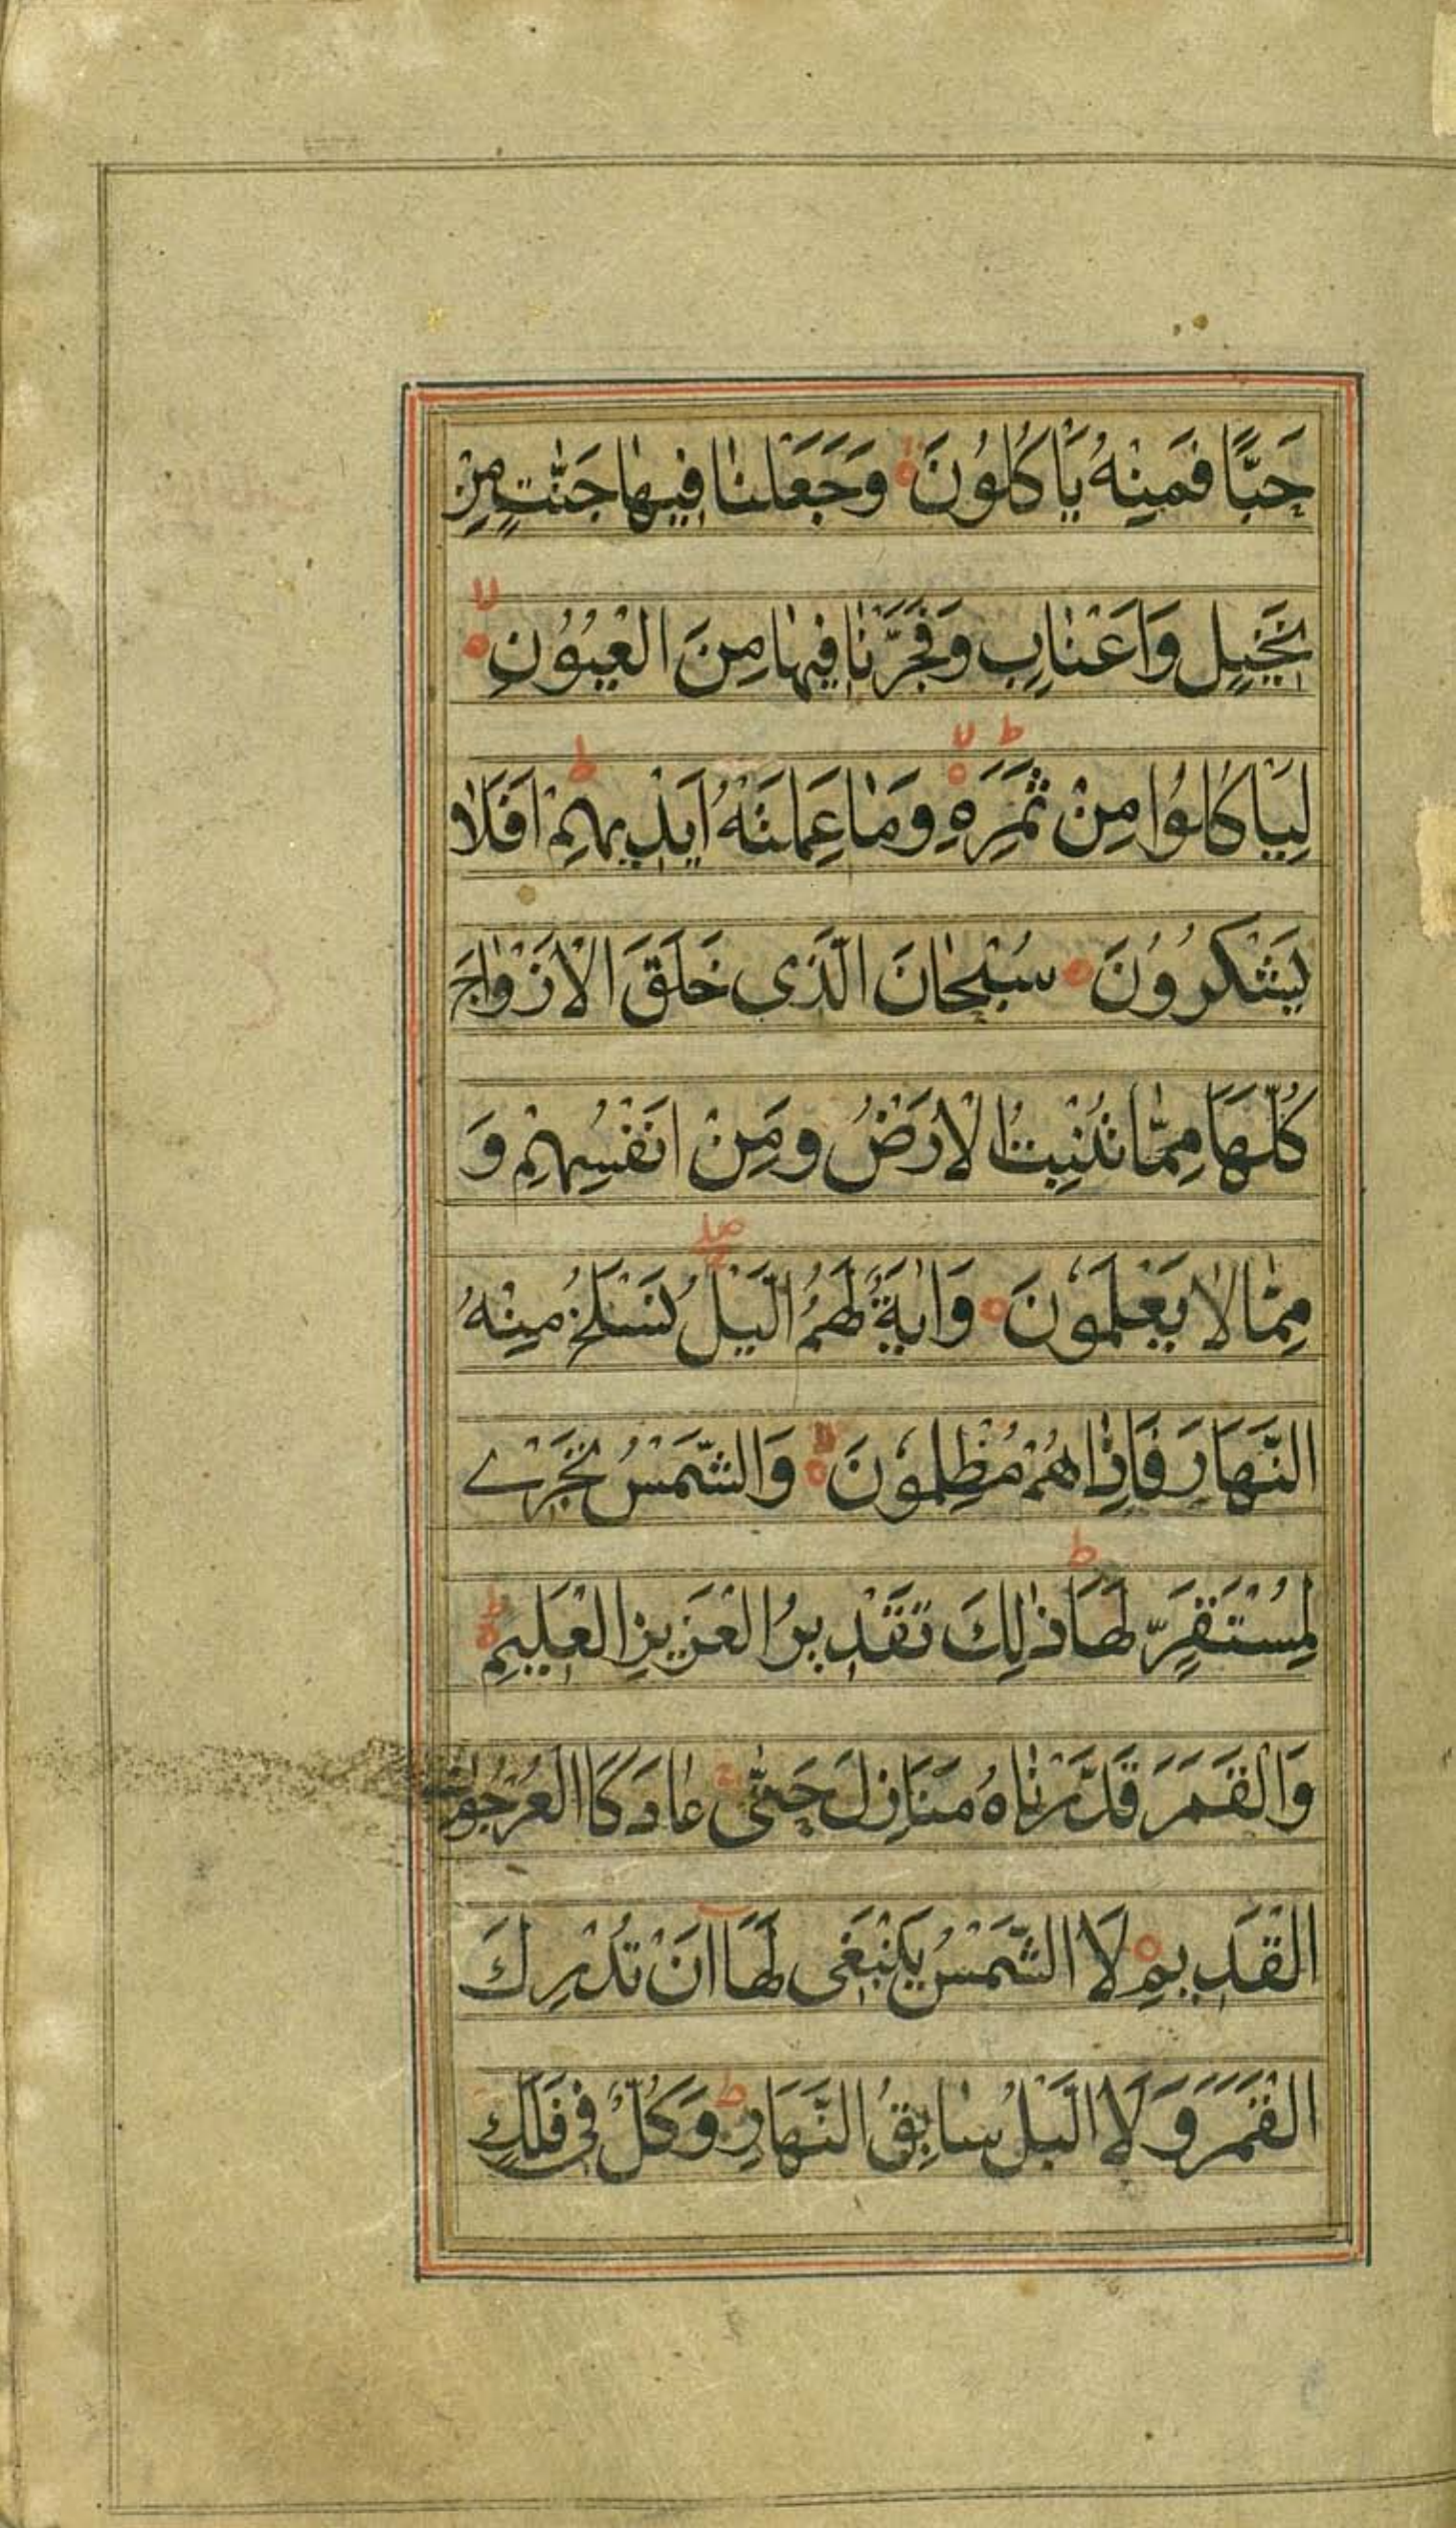 حَبًّا فَمِنْهُ يَاْكُلُونَ وَجَعَلْنٰا فِيهٰا جَنّٰتٍ مِنْ
نَخِيلٍ وَاَعْنٰابٍ وَفَجَّرْنٰا فِيهٰا مِنَ الْعُيُوُنِ
لِيَاْكُلُوا مِنْ ثَمَرِهِ وَمٰا عَمِلَتْهُ اَيْدِيهِمْ اَفَلاٰ
يَشْكُروُنَ سُبْحٰانَ الَّذَى خَلَقَ الْاَزْوٰاجَ
كُلَّهَا مِمّٰا تُنْبِتُ الْاَرْضُ وَمِنْ اَنْفُسِهِمْ وَ
مِمّٰا لاٰ يَعْلَمُونَ وَاٰيَةٌ لَهُمُ الَّيْلُ نَسْلَخُ مِنْهُ
النَّهَارَ فَاِذٰا هُمْ مُظْلِمُونَ وَالشَّمْسُ تَجْرَے
لِمُسْتَقَرٍّ لَهَا ذٰلِكَ تَقْدِيرُ الْعَزِيزِ الْعَلِيمِ
وَالْقَمَرَ قَدَّرْنٰاهُ مَنَازِلَ حَتّٰى عٰادَ كَاالْعُرْجُونِ
الْقَدِيمِ لَا الشَّمْسُ يَنْبَغَى لَهَا اَنْ تُدْرِكَ
الْقَمَرَ وَلَا الَّيْلُ سٰابِقُ النَّهَارِ وَكُلٌّ فِى فَلَكٍ